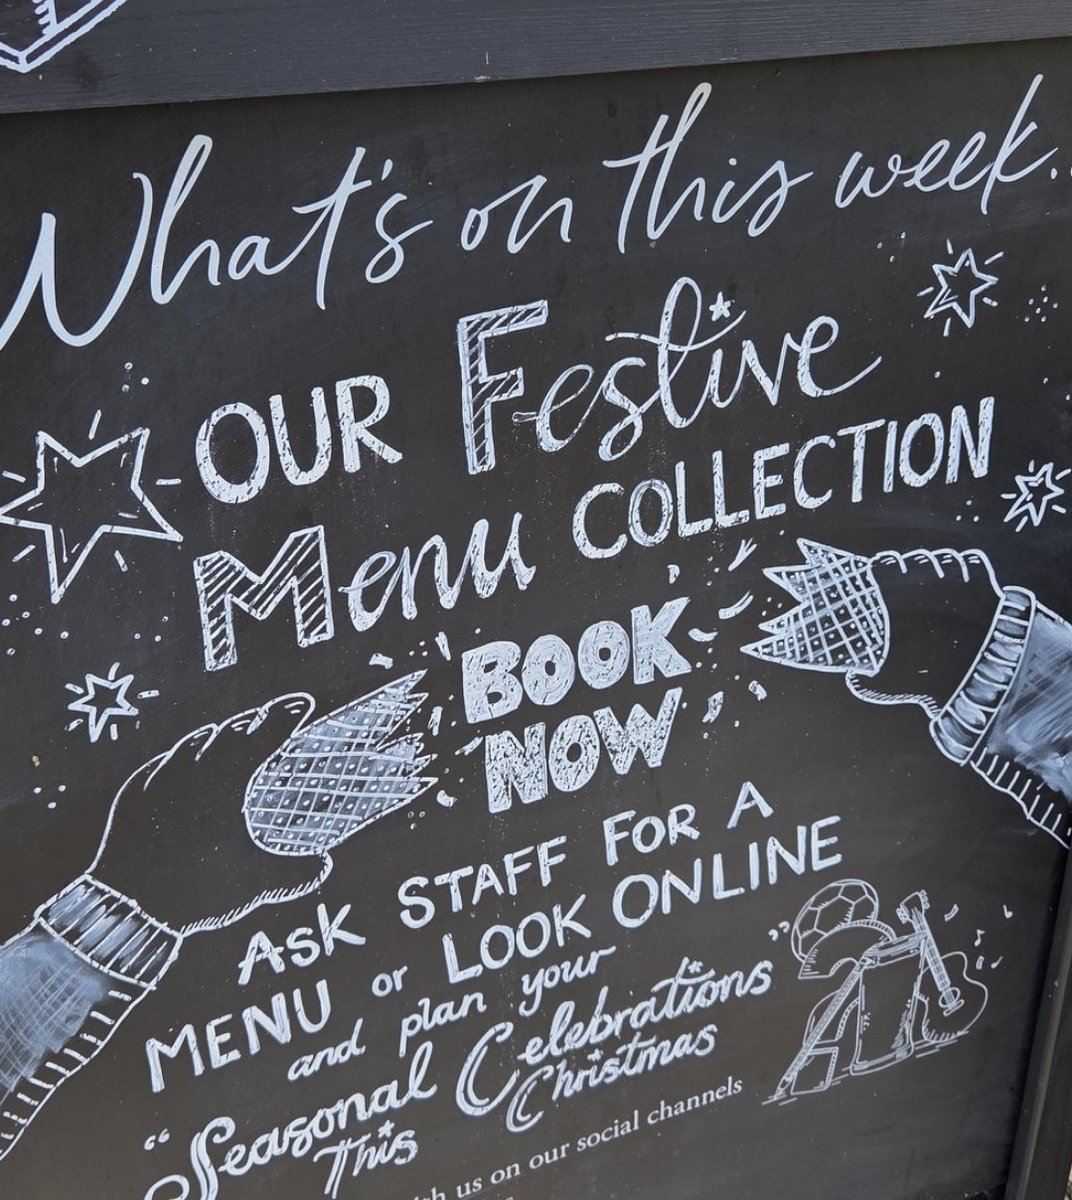 What's on this week...
OUR Festive
Menu COLLECTION
BOOK
NOW
ASK STAFF FOR A
MENU or LOOK ONLINE
and plan your
"Seasonal Celebrations"
This Christmas
us on our social channels